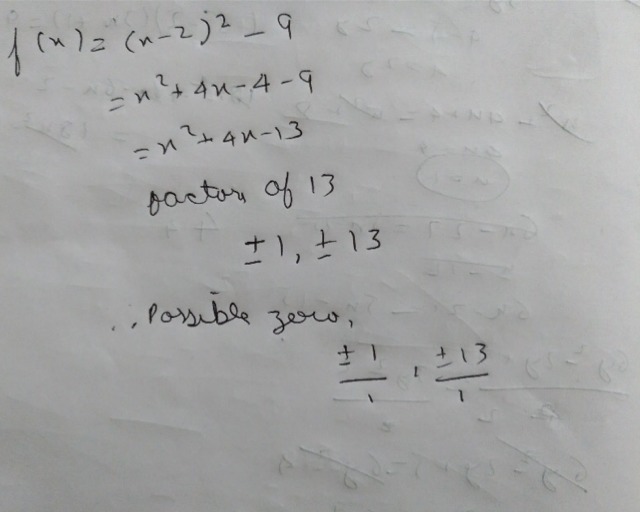 f(x) = (x-2)² - 9
= x² + 4x - 4 - 9
= x² + 4x - 13
factors of 13
± 1, ± 13
∴ Possible zero,
± 1/1 , ± 13/1